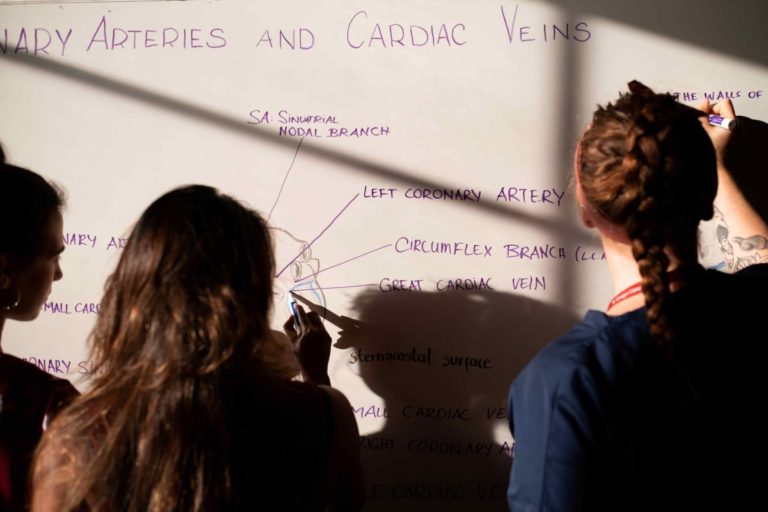 NARY ARTERIES AND CARDIAC VEINS
THE WALLS OF
SA: SINUATRIAL
NODAL BRANCH
LEFT CORONARY ARTERY
NARY AR
CIRCUMFLEX BRANCH (L.C.A
GREAT CARDIAC VEIN
MALL CARD
sternocostal surface
ONARY SIN
MALL CARDIAC VE
RIGHT CORONARY A
LE CARDIAC VE